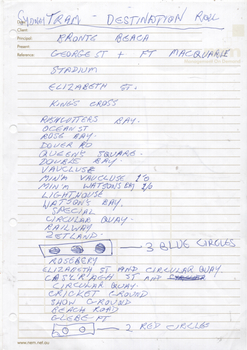 SYDNEY TRAM - DESTINATION ROLL
Client
Principal: BRONTE BEACH
Present:
Reference: GEORGE ST + FT MACQUARIE
STADIUM
ELIZABETH ST.
KINGS CROSS
RUSHCUTTERS BAY.
OCEAN ST
ROSE BAY.
DOVER RD
QUEEN'S SQUARE.
DOUBLE BAY.
VAUCLUSE
MIN'M VAUCLUSE 2/0
MIN'M WATSONS BAY 2/0
LIGHTHOUSE
WATSON'S BAY.
SPECIAL
CIRCULAR QUAY.
RAILWAY
ZETLAND.
3 BLUE CIRCLES
ROSEBERY
ELIZABETH ST AND CIRCULAR QUAY.
CASTLREAGH ST AND
CIRCULAR QUAY.
CRICKET GROUND
SHOW GROUND
BEACH ROAD
GLEBE PT
2 RED CIRCLES